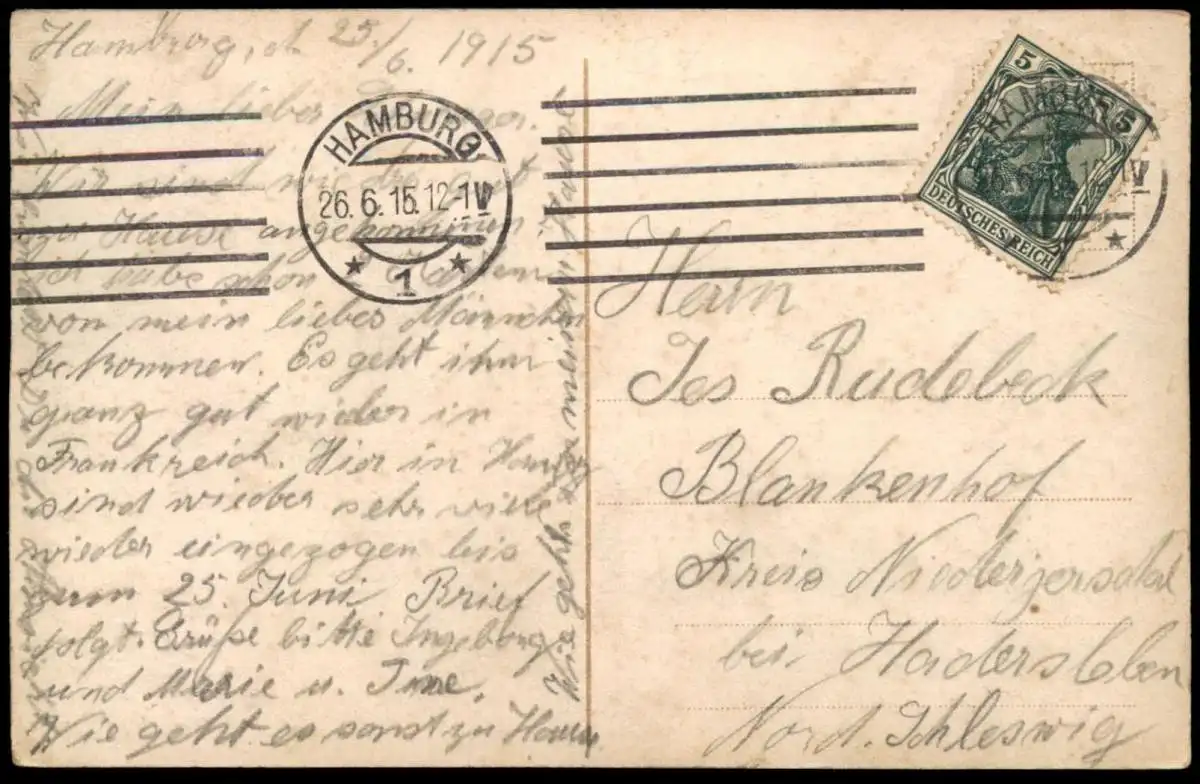 Hamburg, d 25/6. 1915
Mein lieber
Wir sind wieder gut
zu Hause angekommen
ich habe schon
von mein liebes Männchen
bekommen. Es geht ihm
ganz gut wieder in
Frankreich. Hier in
sind wieder sehr viele
wieder eingezogen bis
zum 25. Juni Brief
folgt. Grüße bitte Ingeborg
und Marie u.
Wie geht es sonst zu Hause
Wie geht
HAMBURG
26.6.15.12-1V
1
5
5
DEUTSCHES REICH
HAMBURG
Herrn
Jes Rudebeck
Blankenhof
Kreis Niederjersdal
bei Hadersleben
Nord. Schleswig